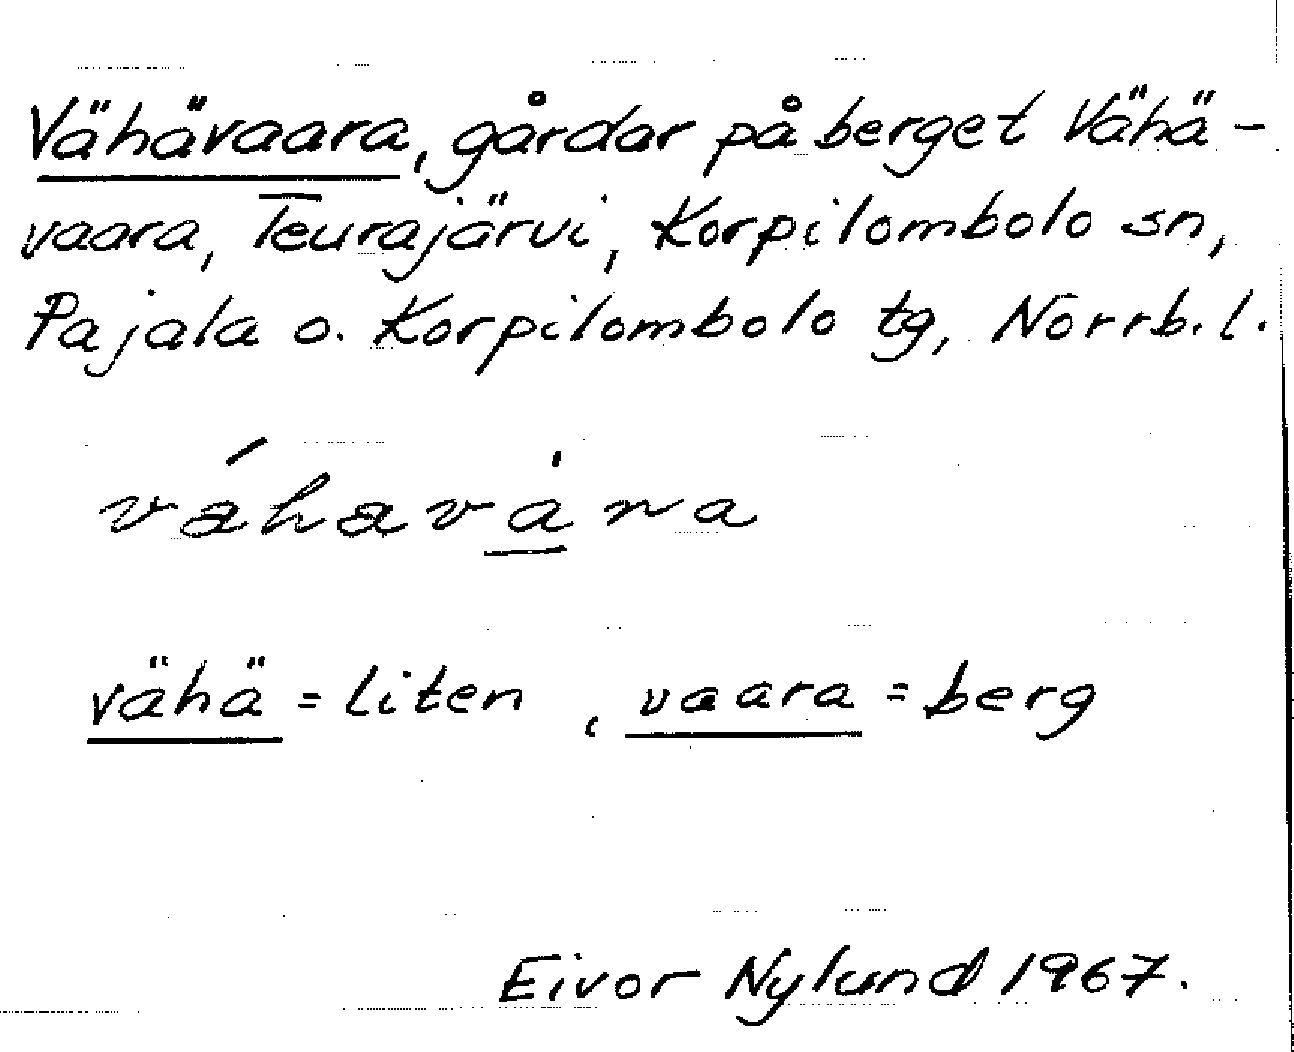 Vähävaara, gårdar på berget Vähä-
vaara, Teurajärvi, Korpilombolo sn,
Pajala o. Korpilombolo tg, Norrb. l.
vähä = liten, vaara = berg
Eivor Nylund 1967.